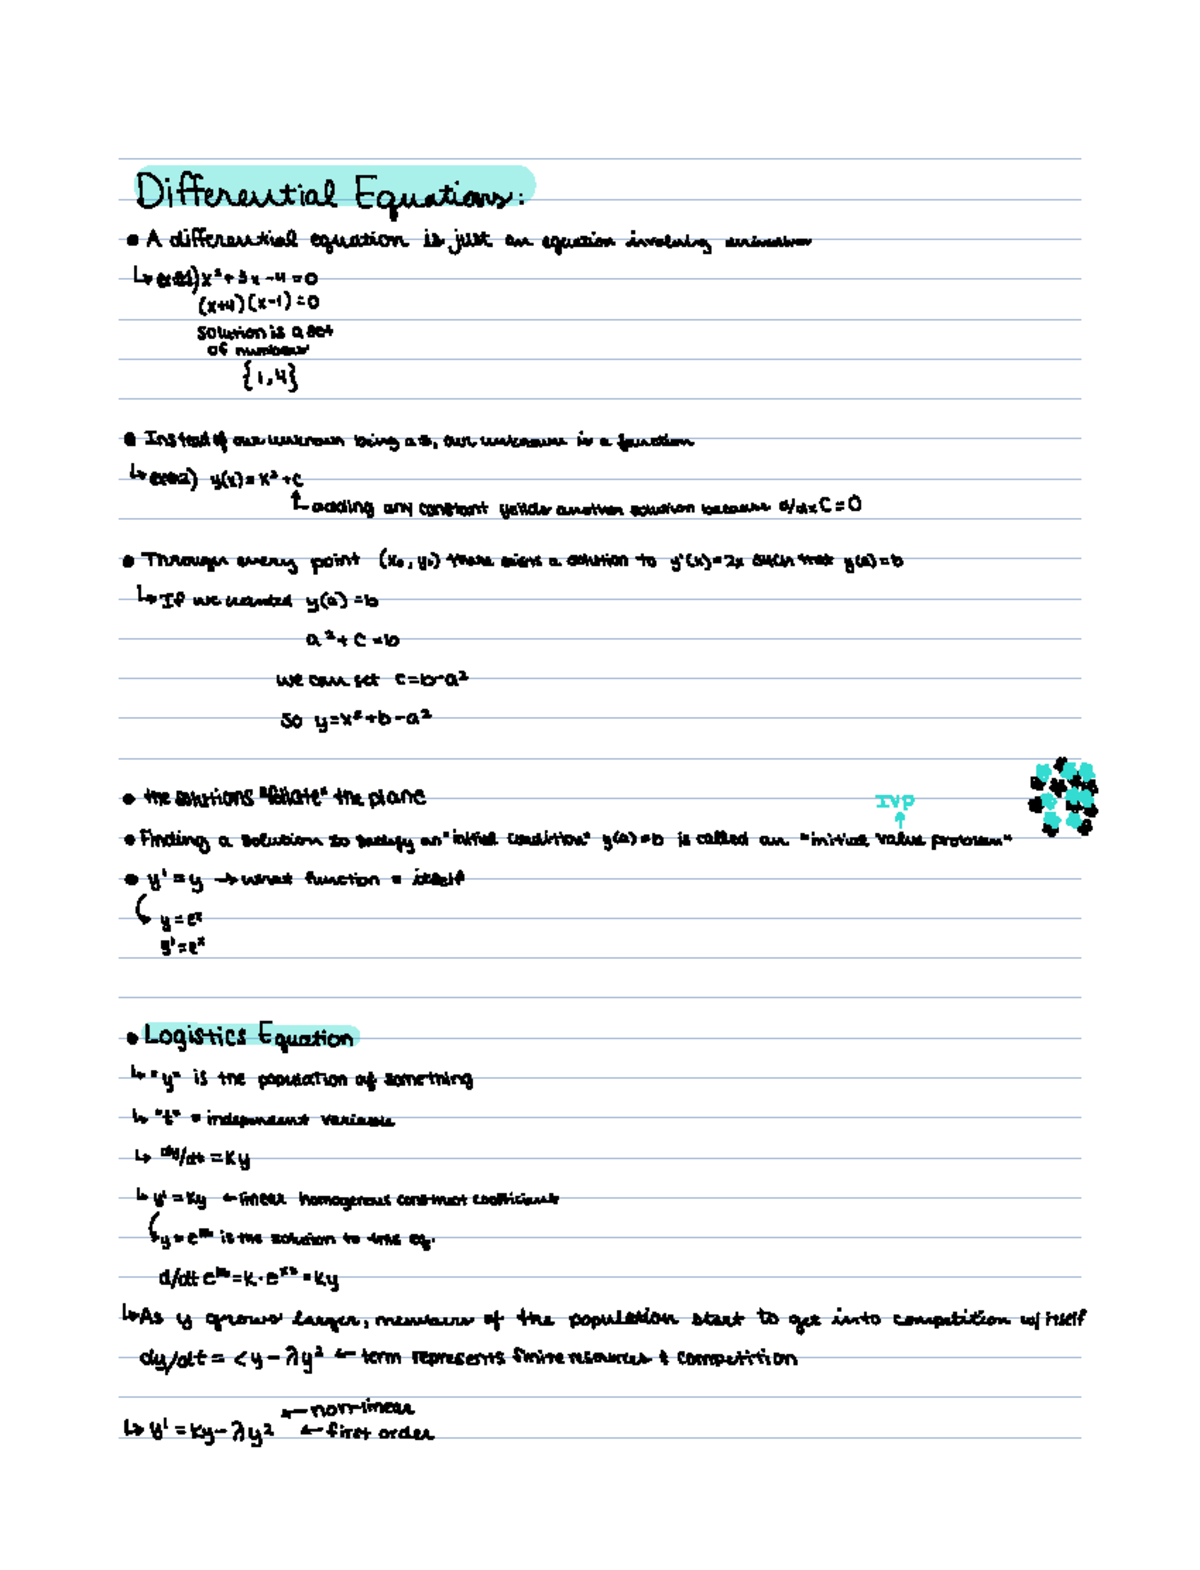 Differential Equations:
• A differential equation is just an equation involving derivatives
↳ ex#1) x² + 3x - 4 = 0
(x+4)(x-1) = 0
solution is a set
of numbers
{1,4}
• Instead of our unknown being a #, our unknown is a function
↳ ex#2) y(x) = x² + C
adding any constant yeilds another solution because d/dx C = 0
• Through every point (x₀, y₀) there exists a solution to y'(x)=2x such that y(a)=b
↳ If we wanted y(a) = b
a² + C = b
we can set C = b-a²
So y = x² + b - a²
• the solutions "foliate" the plane
IVP
• Finding a solution to satisfy an "initial condition" y(a)=b is called an "initial value problem"
• y' = y → what function = itself
y = eˣ
y' = eˣ
• Logistics Equation
↳ "y" is the population of something
↳ "t" = independent variable
↳ dy/dt = Ky
↳ y' = Ky ← linear homogenous constant coefficients
y = eᵏᵗ is the solution to this eq.
d/dt eᵏᵗ = k · eᵏᵗ = ky
↳ As y grows larger, members of the population start to get into competition w/ itself
dy/dt = <y - λy² ← term represents finite resources & competition
← non-linear
↳ y' = Ky - λy² ← first order